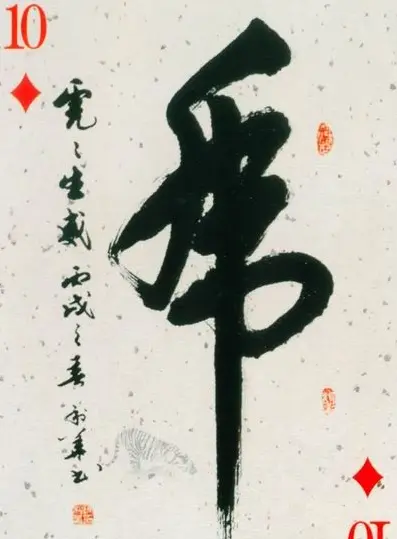 10
虎
虎虎生威 丙戌之春
10